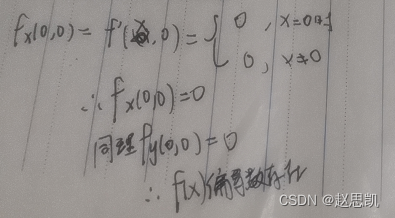 fx(0,0) = f'(x,0) = { 0 , x=0时
0, x≠0
∴ fx(0,0)=0
同理 fy(0,0)=0
∴ f(x)偏导数存在
CSDN @赵思凯